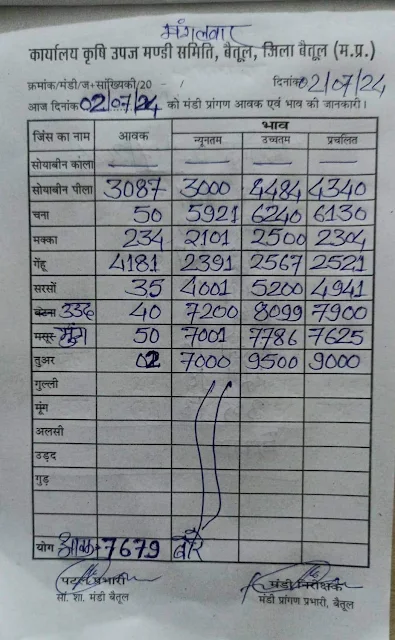 मंगलवार
कार्यालय कृषि उपज मण्डी समिति, बैतूल, जिला बैतूल (म.प्र.)
क्रमांक/मंडी/ज+सांख्यिकी/20 - दिनांक 02/07/24
आज दिनांक 02/07/24 को मंडी प्रांगण आवक एवं भाव की जानकारी।
जिंस का नाम आवक भाव
न्यूनतम उच्चतम प्रचलित
सोयाबीन काला — — — —
सोयाबीन पीला 3087 3000 4484 4340
चना 50 5921 6240 6130
मक्का 234 2101 2500 2304
गेंहू 4181 2391 2567 2521
सरसों 35 4001 5200 4941
बटना उड़द 40 7200 8099 7900
मसूर मूंग 50 7001 7786 7625
तुअर 02 7000 9500 9000
गुल्ली
मूंग
अलसी
उड़द
गुड़
योग आवक 7679 बोरे
पटल प्रभारी मंडी निरीक्षक
सां. शा. मंडी बैतूल मंडी प्रांगण प्रभारी, बैतूल